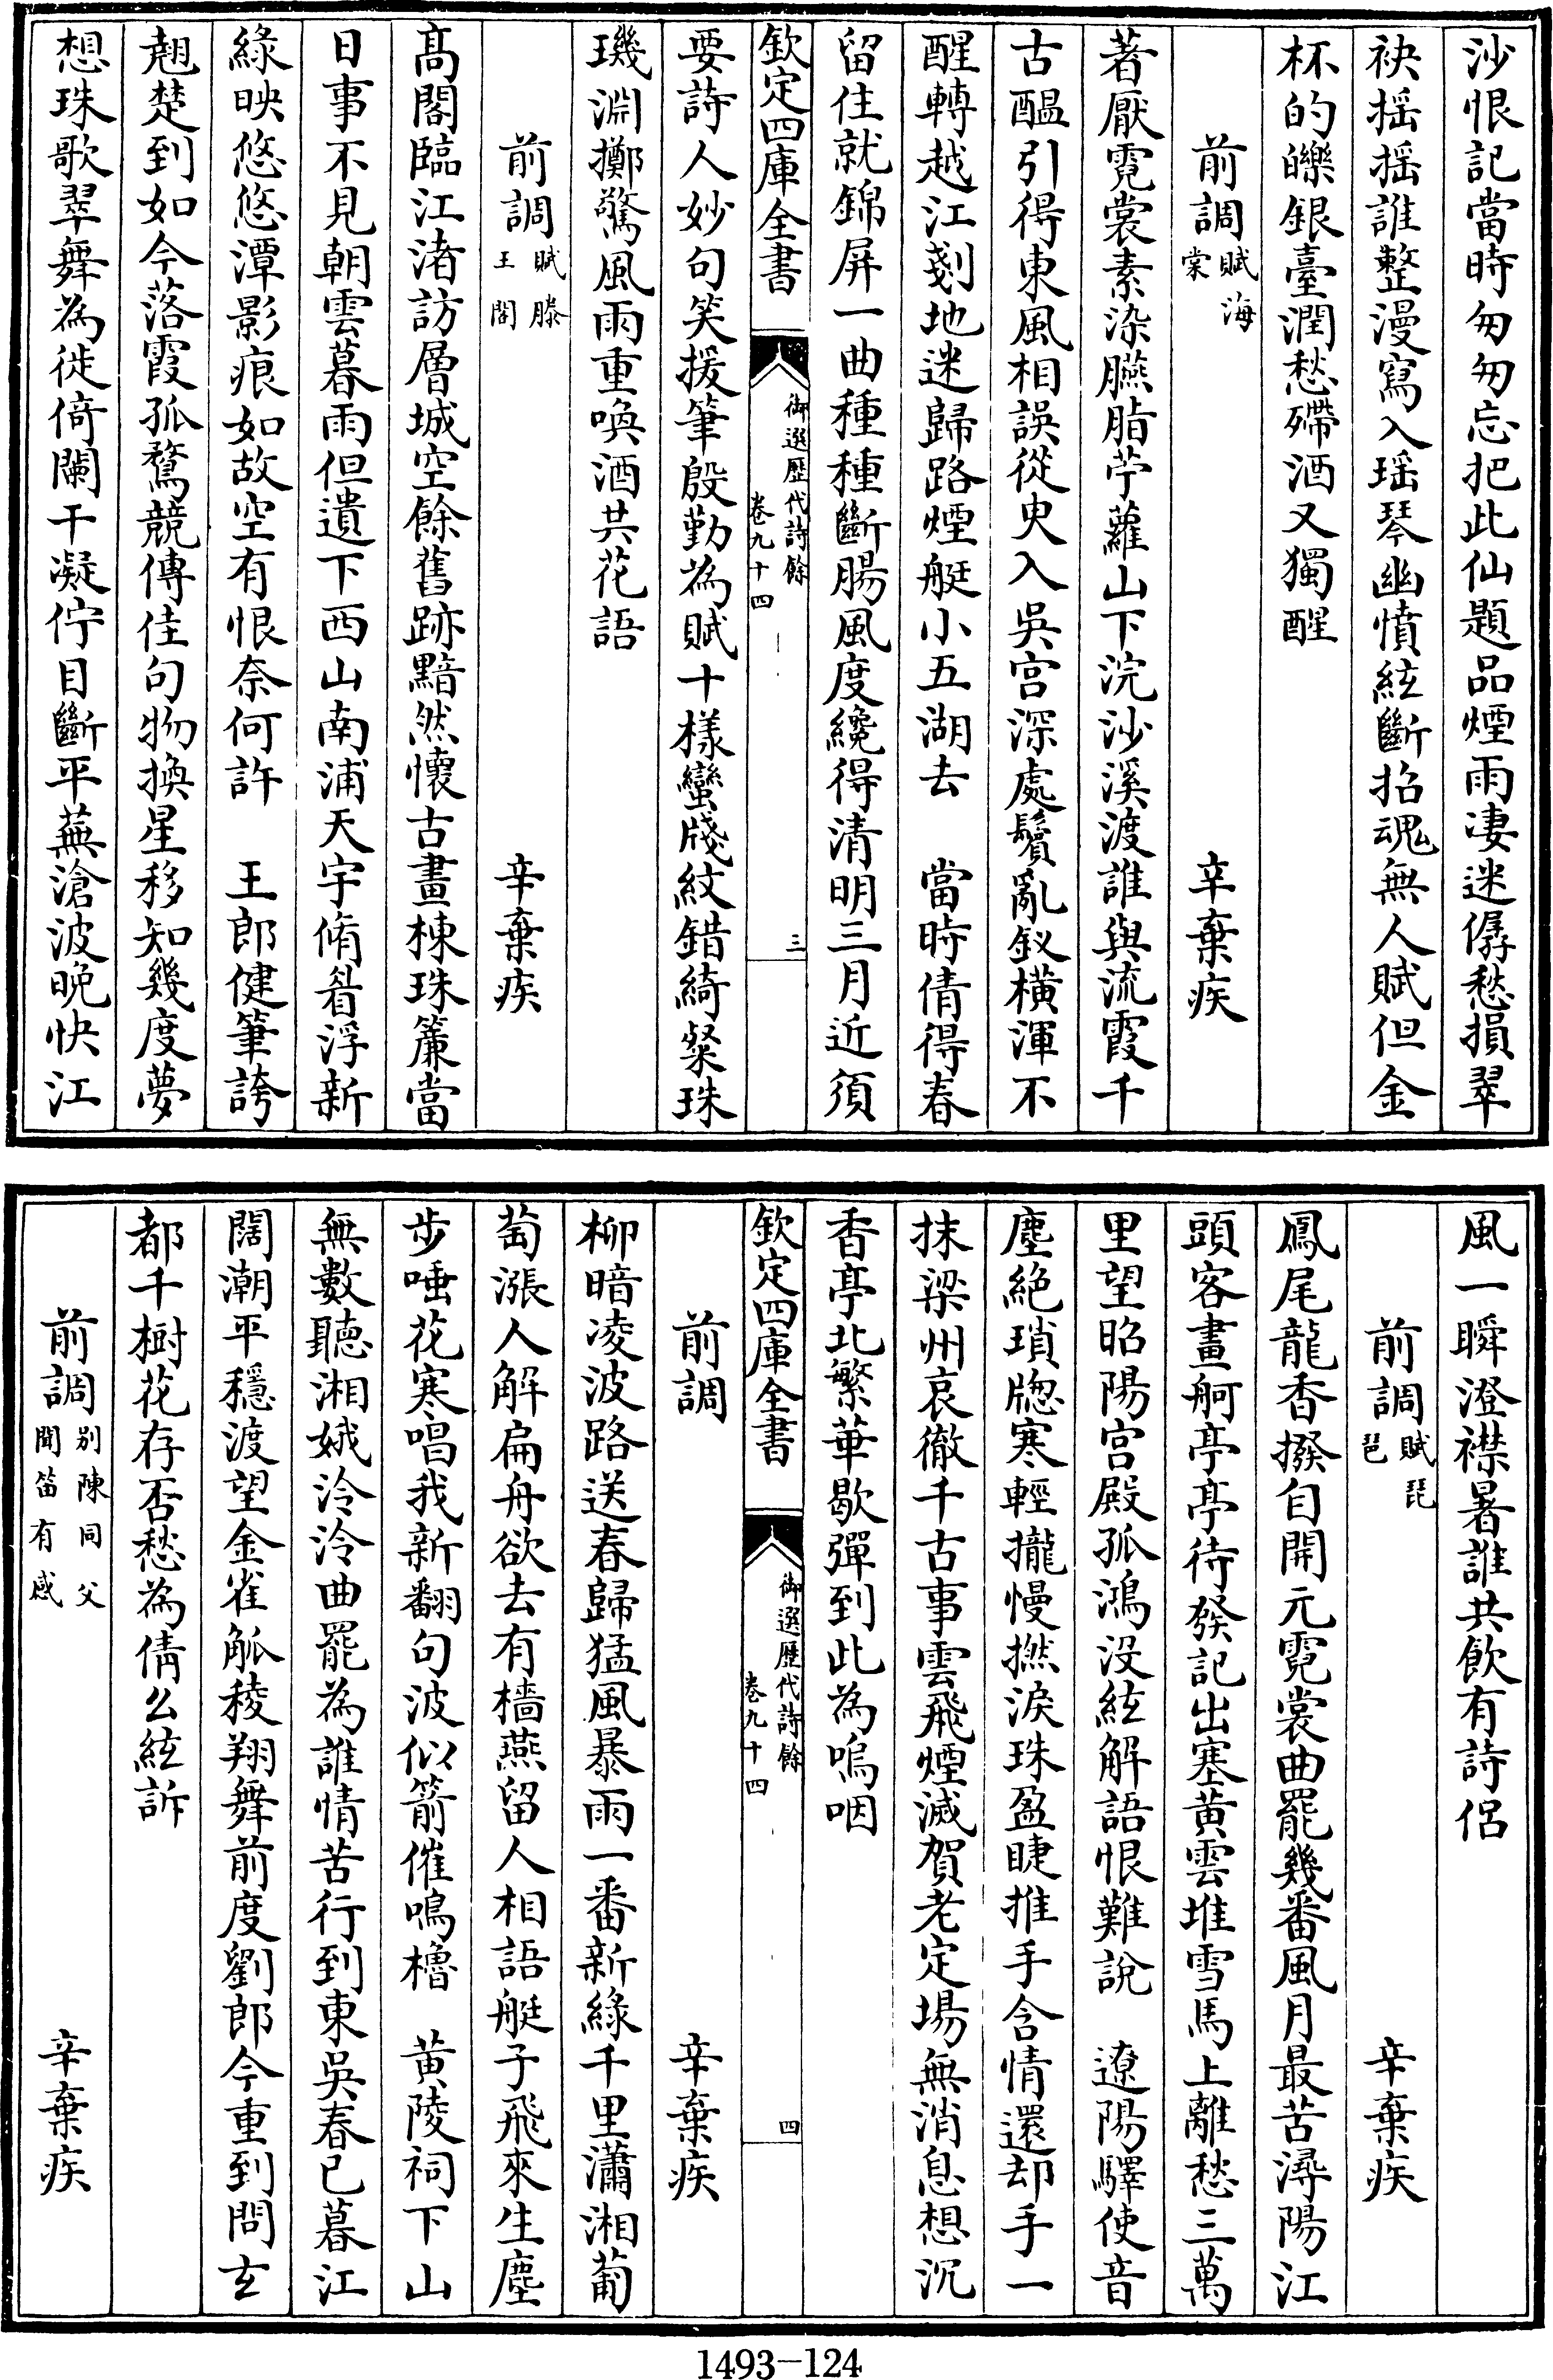 沙恨記當時匆匆忘把此仙題品煙雨凄迷僝愁損翠
袂摇摇誰整漫寫入瑶琴幽憤絃斷招魂無人賦但金
杯的皪銀臺潤愁殢酒又獨醒
前調賦海棠 辛棄疾
著厭霓裳素染臙脂苧蘿山下浣沙溪渡誰與流霞千
古醖引得東風相誤從㬰入吳宫深處鬢亂釵橫渾不
醒轉越江剗地迷歸路煙艇小五湖去 當時倩得春
留住就錦屏一曲種種斷腸風度纔得清明三月近須
欽定四庫全書 御選歷代詩餘 卷九十四 三
要詩人妙句笑援筆殷勤為賦十樣蠻牋紋錯綺粲珠
璣淵擲驚風雨重喚酒共花語
前調賦滕王閣 辛棄疾
髙閣臨江渚訪層城空餘舊跡黯然懷古畫棟珠簾當
日事不見朝雲暮雨但遺下西山南浦天宇脩眉浮新
綠映悠悠潭影痕如故空有恨奈何許 王郎健筆誇
翹楚到如今落霞孤鶩競傳佳句物換星移知幾度夢
想珠歌翠舞為徙倚闌干凝佇目斷平蕪滄波晚快江
風一瞬澄襟暑誰共飲有詩侶
前調賦琵琶 辛棄疾
鳳尾龍香撥自開元霓裳曲罷幾番風月最苦潯陽江
頭客畫舸亭亭待發記出塞黄雲堆雪馬上離愁三萬
里望昭陽宫殿孤鴻没絃解語恨難說 遼陽驛使音
塵絶瑣牕寒輕攏慢撚淚珠盈睫推手含情還却手一
抹梁州哀徹千古事雲飛煙滅賀老定場無消息想沉
香亭北繁華歇彈到此為嗚咽
欽定四庫全書 御選歷代詩餘 卷九十四 四
前調 辛棄疾
柳暗凌波路送春歸猛風暴雨一番新綠千里瀟湘葡
萄漲人解扁舟欲去有檣燕留人相語艇子飛來生塵
步唾花寒唱我新翻句波似箭催鳴櫓 黄陵祠下山
無數聽湘娥泠泠曲罷為誰情苦行到東吳春已暮江
闊潮平穩渡望金雀觚稜翔舞前度劉郎今重到問玄
都千樹花存否愁為倩么絃訴
前調别陳同父聞笛有感 辛棄疾
1493—124